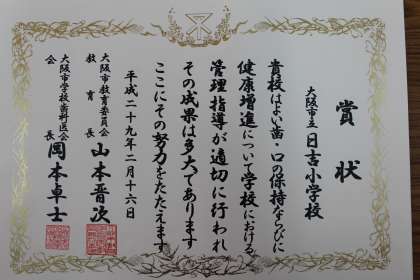 賞状
大阪市立日吉小学校
貴校はよい歯・口の保持ならびに
健康増進について学校における
管理指導が適切に行われ
その成果は多大であります
ここにその努力をたたえます
平成二十九年二月十六日
大阪市教育委員会
教育長 山本晋次
大阪市学校歯科医会
会長 岡本卓士